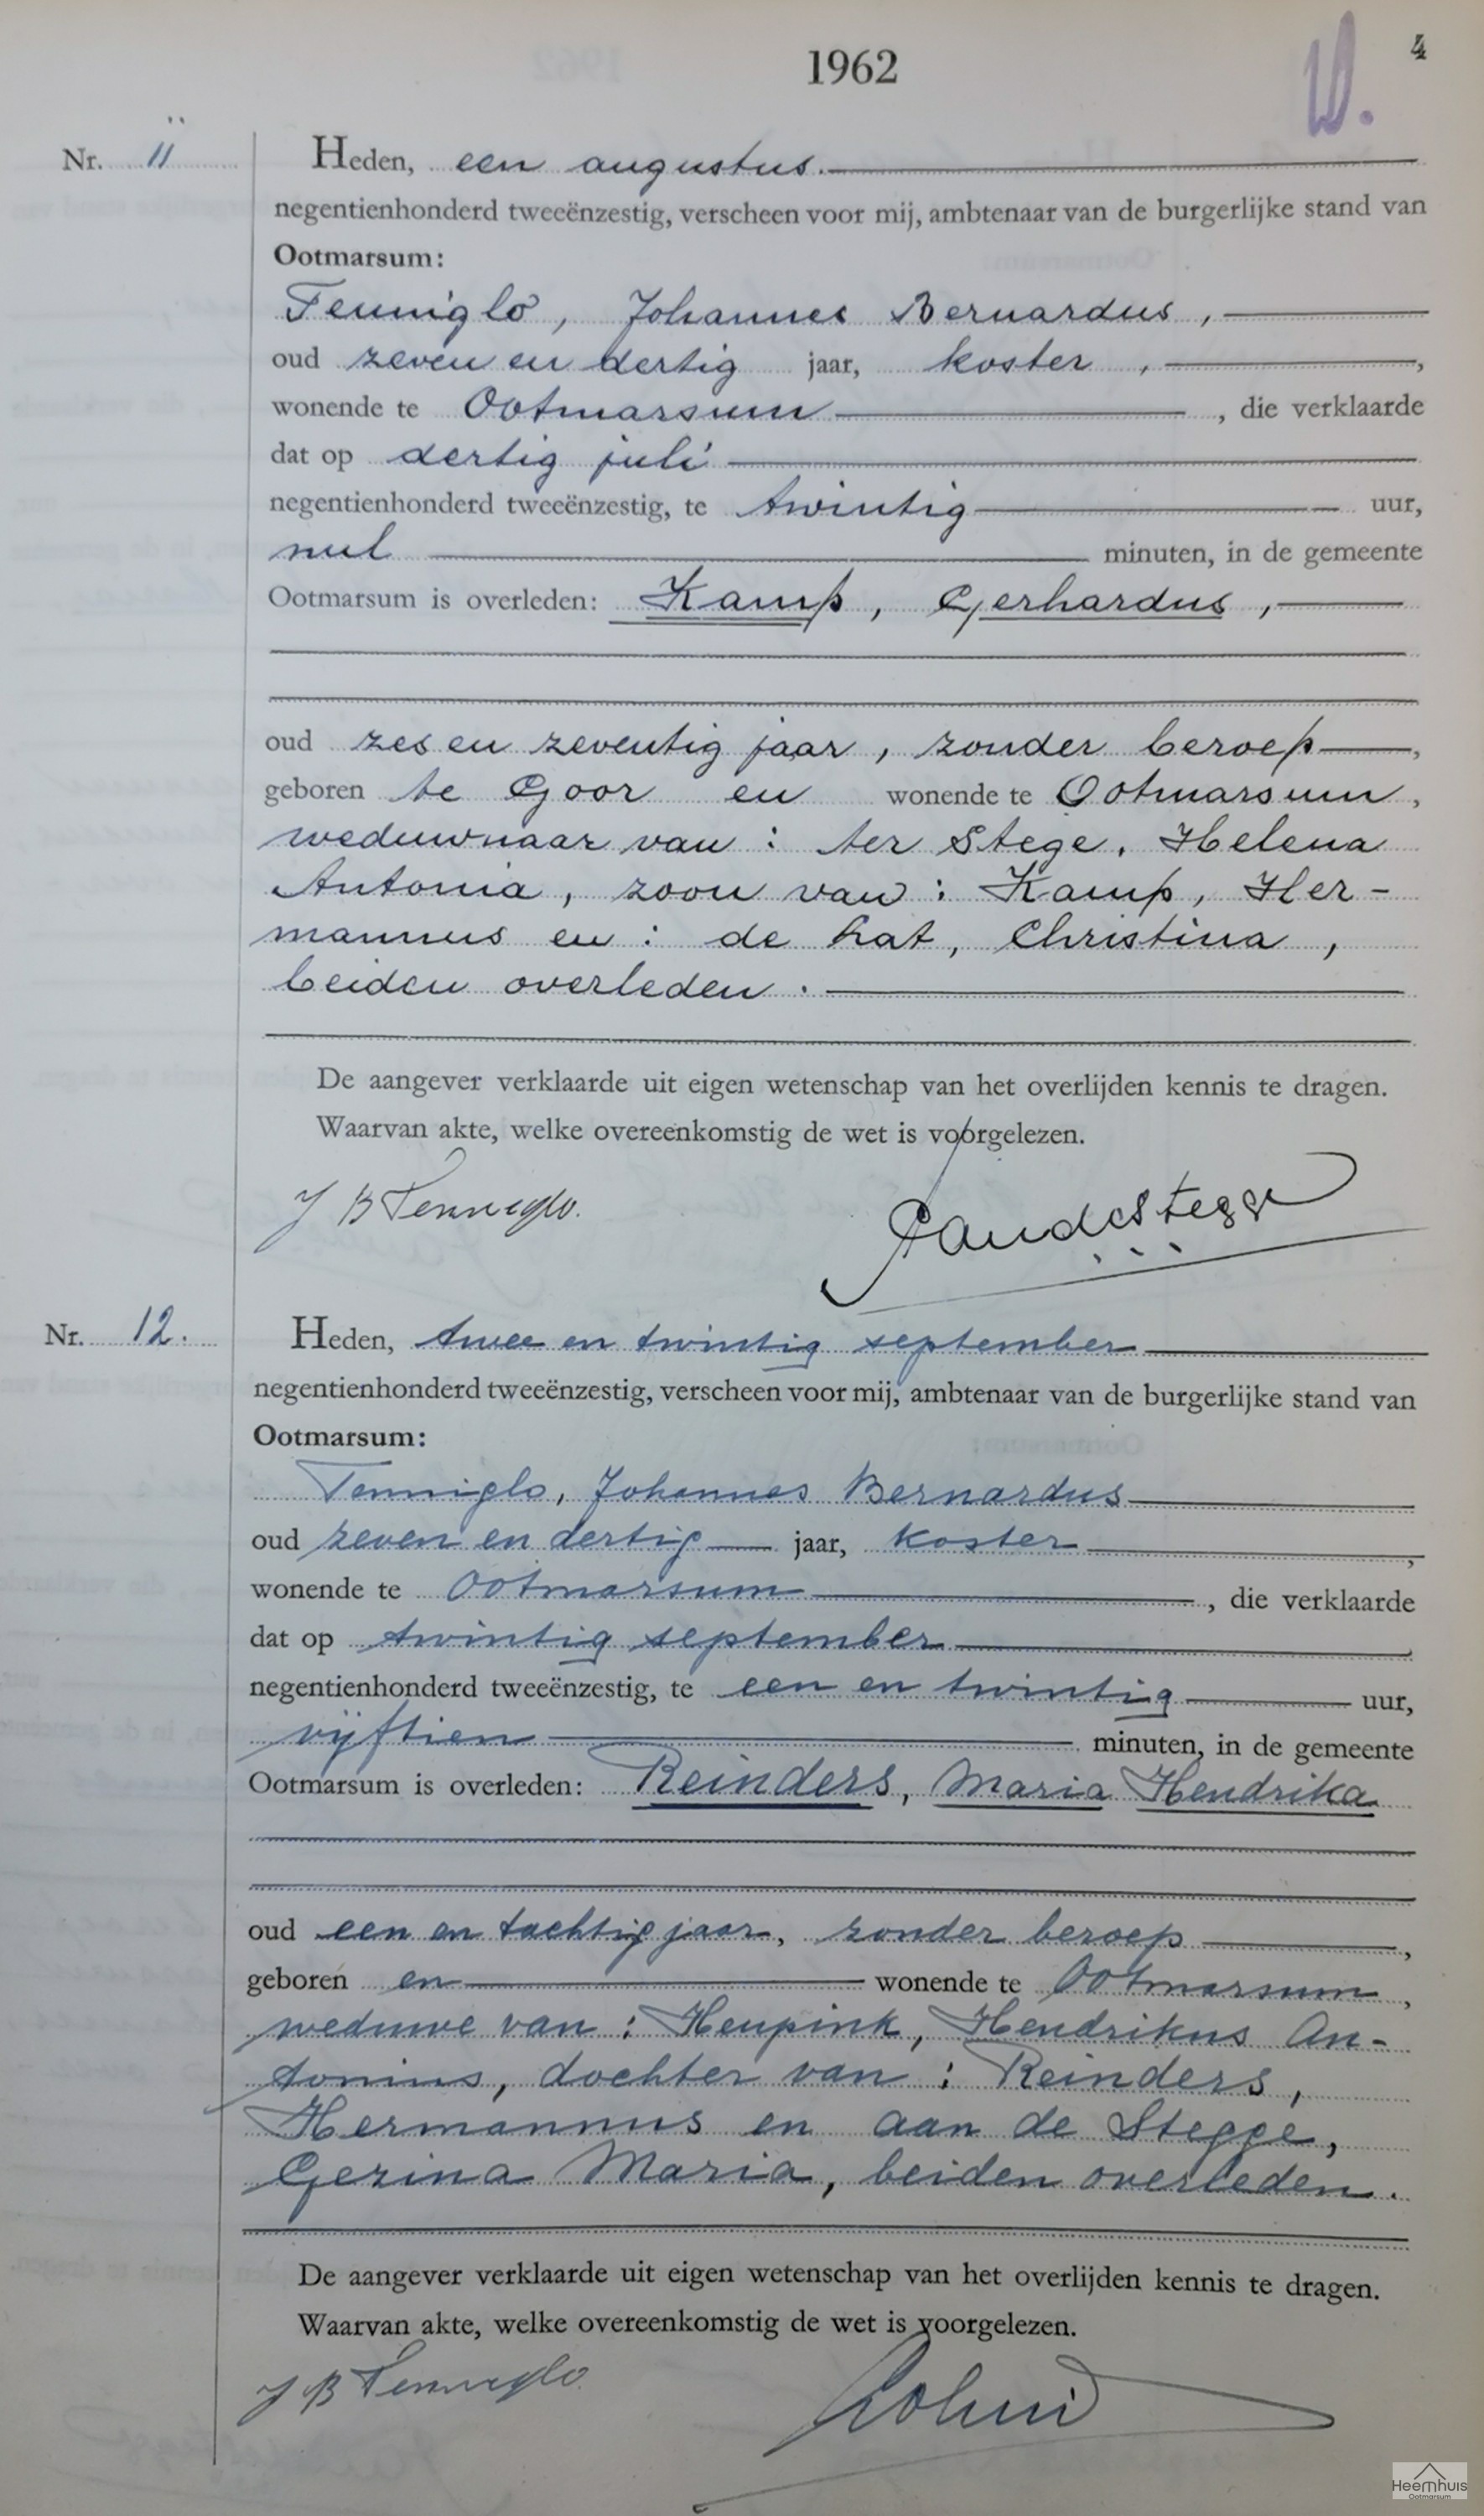 1962
4
Nr. 11
Heden, een augustus.
negentienhonderd tweeënzestig, verscheen voor mij, ambtenaar van de burgerlijke stand van
Ootmarsum:
Tenniglo, Johannes Bernardus,
oud zeven en dertig jaar, koster,
wonende te Ootmarsum, die verklaarde
dat op dertig juli
negentienhonderd tweeënzestig, te twintig uur,
nul minuten, in de gemeente
Ootmarsum is overleden: Kamp, Gerhardus,
oud zes en zeventig jaar, zonder beroep,
geboren te Goor en wonende te Ootmarsum,
weduwnaar van: ter Stege, Helena
Antonia, zoon van: Kamp, Her-
mannus en: de Lat, Christina,
beiden overleden.
De aangever verklaarde uit eigen wetenschap van het overlijden kennis te dragen.
Waarvan akte, welke overeenkomstig de wet is voorgelezen.
J B Tenniglo.
Nr. 12.
Heden, twee en twintig september
negentienhonderd tweeënzestig, verscheen voor mij, ambtenaar van de burgerlijke stand van
Ootmarsum:
Tenniglo, Johannes Bernardus
oud zeven en dertig jaar, koster,
wonende te Ootmarsum, die verklaarde
dat op twintig september
negentienhonderd tweeënzestig, te een en twintig uur,
vijftien minuten, in de gemeente
Ootmarsum is overleden: Reinders, Maria Hendrika
oud een en tachtig jaar, zonder beroep,
geboren en wonende te Ootmarsum,
weduwe van: Heupink, Hendrikus An-
tonius, dochter van: Reinders,
Hermannus en aan de Stegge,
Gezina Maria, beiden overleden.
De aangever verklaarde uit eigen wetenschap van het overlijden kennis te dragen.
Waarvan akte, welke overeenkomstig de wet is voorgelezen.
J B Tenniglo.
Heemhuis
Ootmarsum